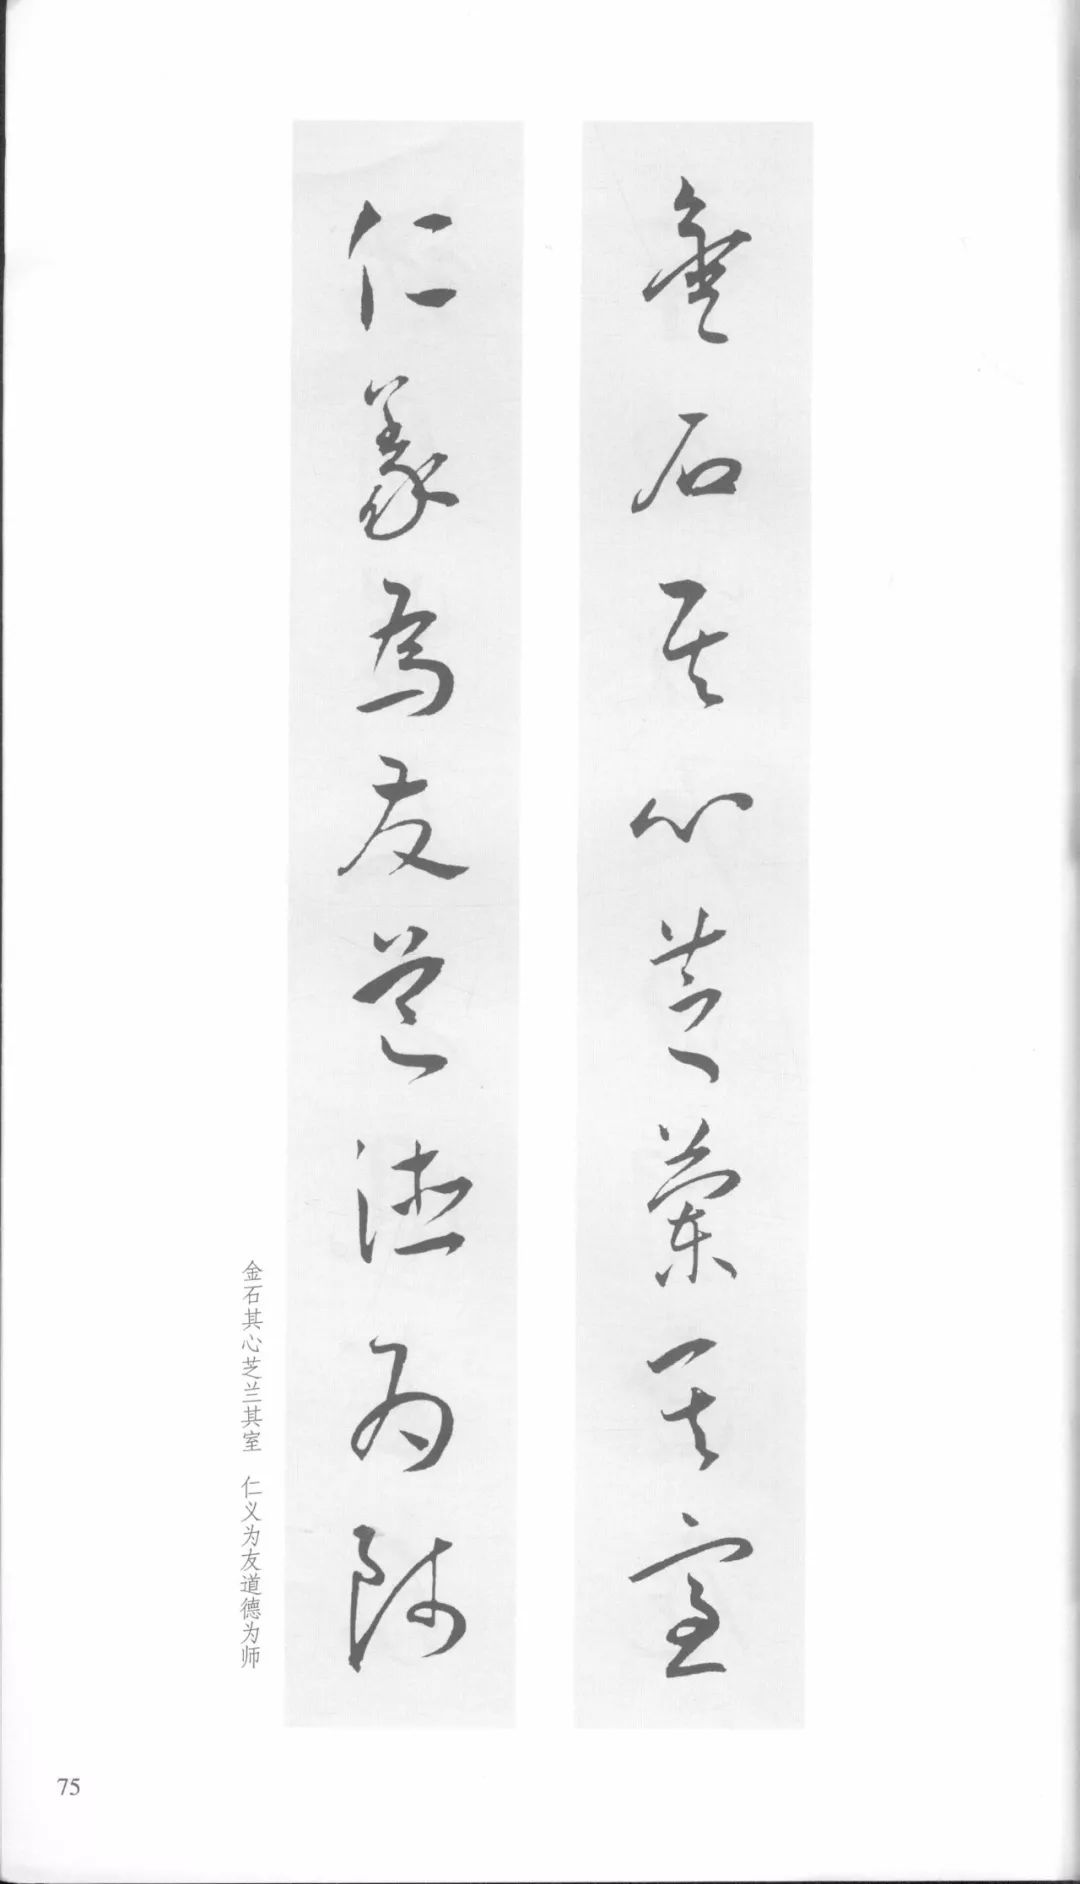 金石其心芝蘭其室
仁義為友道德為師
金石其心芝兰其室　仁义为友道德为师
75